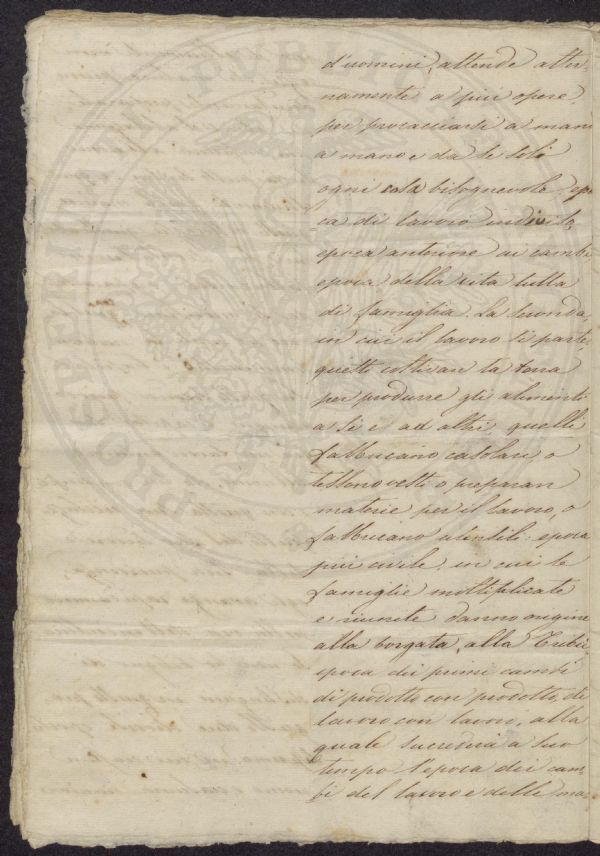 d'uomini, attende alter
namente a più opere,
per procacciarsi a mano
a mano e da se solo
ogni cosa bisognevole, epo
ca di lavoro indiviso,
epoca anteriore ai cambi
epoca della vita tutta
di famiglia. La seconda,
in cui il lavoro si parte,
questi coltivan la terra
per produrre gli alimenti
a se e ad altri, quelli
fabbricano casolari, o
tessono vesti o preparan
materie per il lavoro, o
fabbricano utensili: epoca
più civile, in cui le
famiglie moltiplicate
e riunite danno origine
alla borgata, alla Tribù
epoca dei primi cambi
di prodotto con prodotto, di
lavoro con lavoro, alla
quale succederà a suo
tempo l'epoca dei cam
bi del lavoro e delle ma
PROSPERITATI PUBLIC